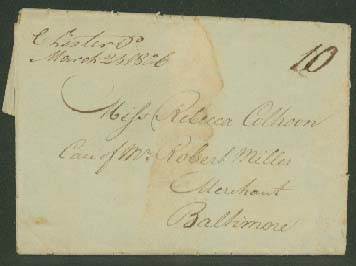 Chester Pa
10
March 25 1806
Miss Rebecca Colhoon
Care of Mr Robert Miller
Merchant
Baltimore